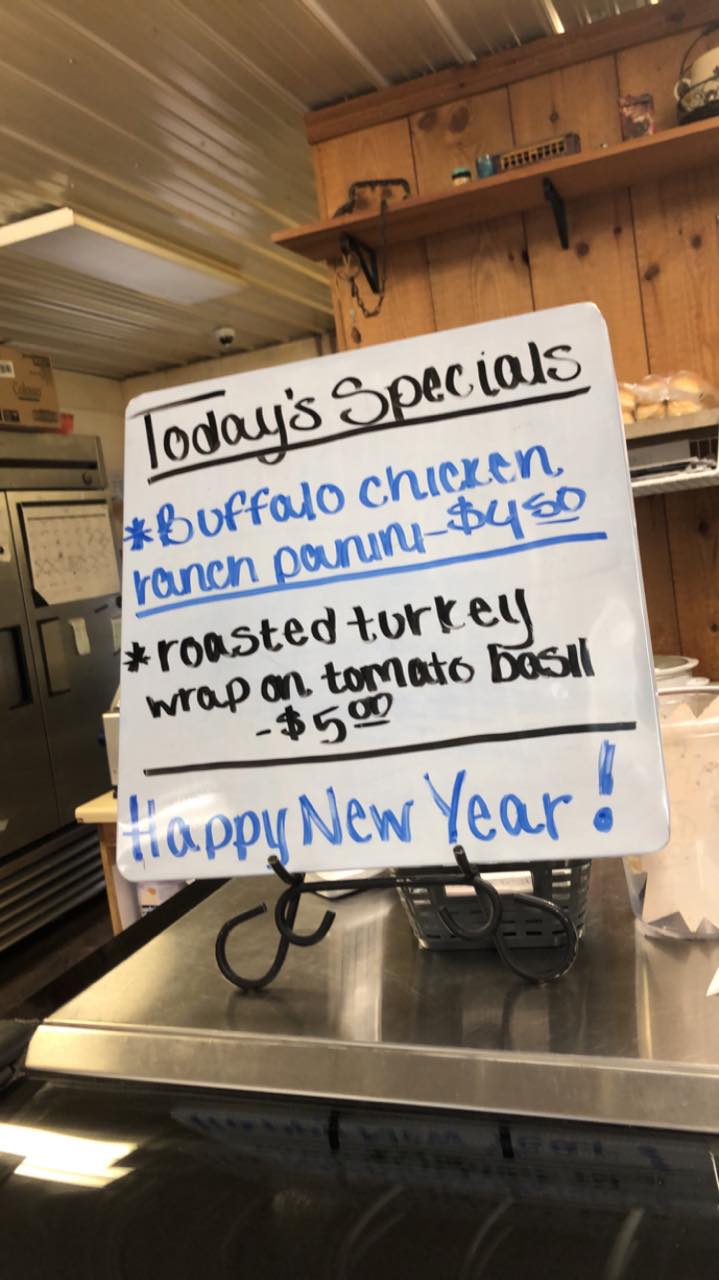 Today's Specials
*Buffalo chicken
ranch panini-$4.50
*roasted turkey
wrap on tomato basil
-$5.00
Happy New Year!